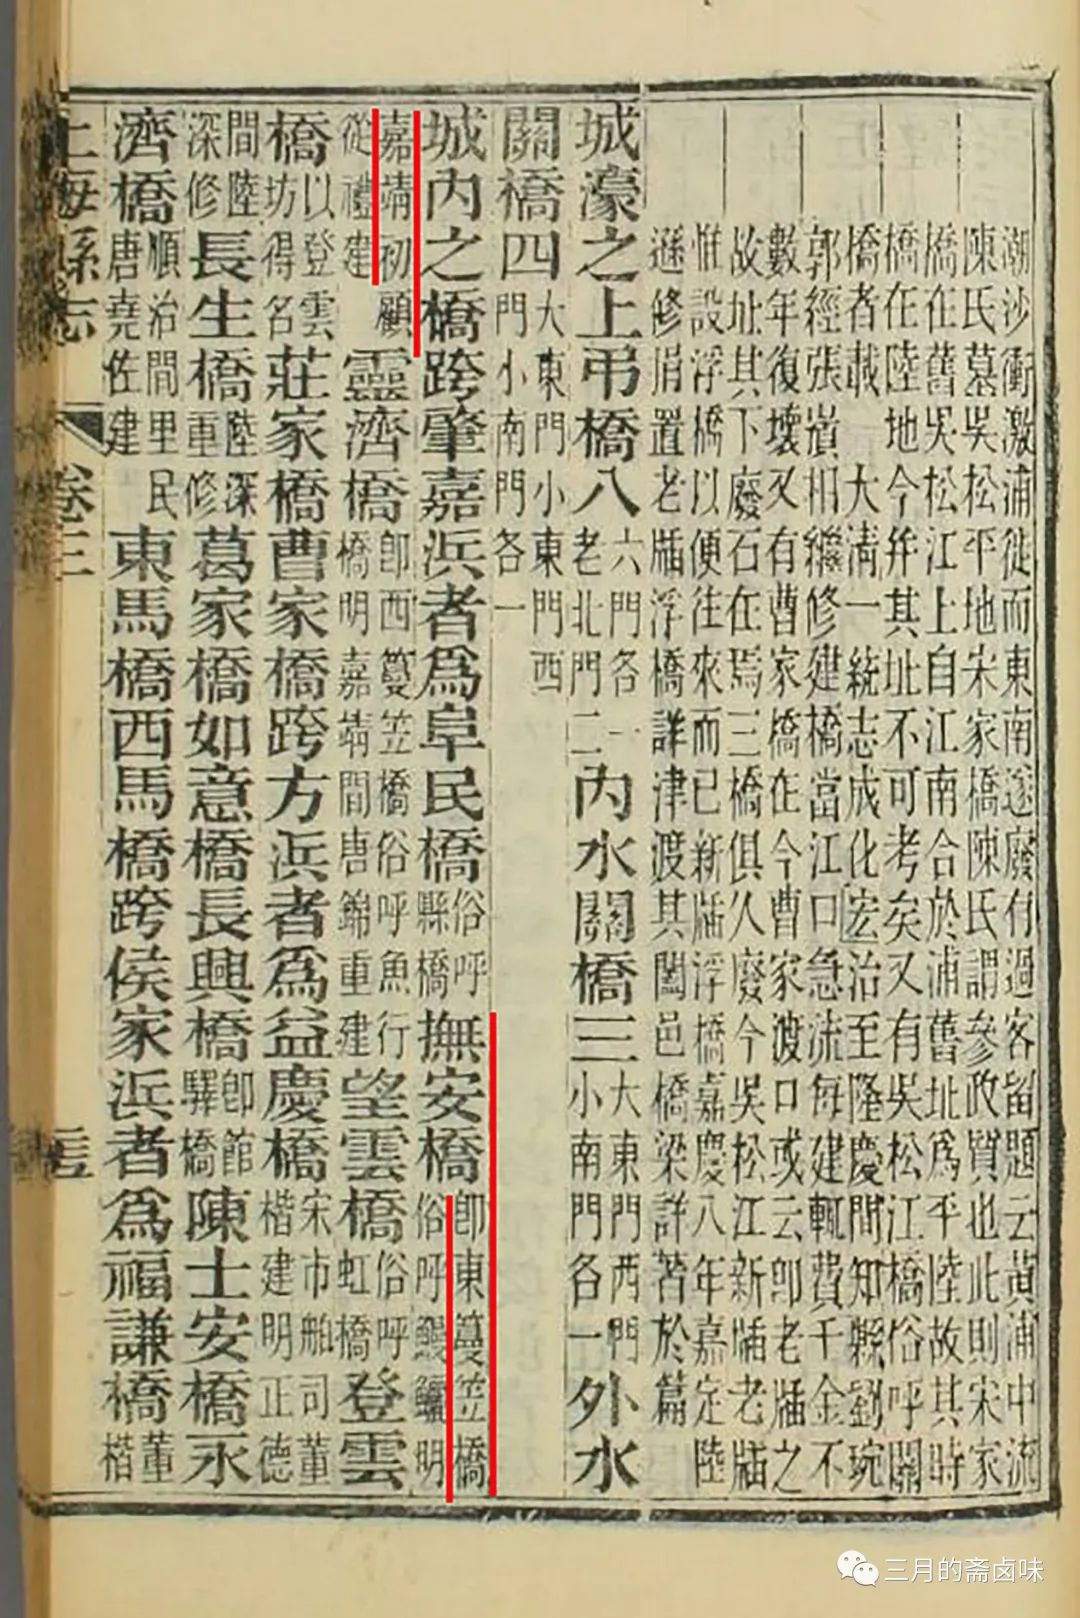 潮沙衝激浦徙而東南遂廢有過客留題云黃浦中流
陳氏墓吳松平地宋家橋陳氏謂參政質也此則宋家
橋在舊吳松江上自江南合於浦舊址爲平陸故其時
橋在陸地今幷其址不可考矣又有吳松江橋俗呼關
橋者載 大淸一統志成化宏治至隆慶間知縣劉琬
郭經張相繼修建橋當江口急流每建輒費千金不
數年復壞又有曹家橋在今曹家渡口或云卽老牐之
故址其下廢石在焉三橋俱久廢今吳松江新牐老牐
惟設浮橋以便往來而已新牐浮橋嘉慶八年嘉定陸
遜修捐置老牐浮橋詳津渡其闔邑橋梁詳著於篇
城濠之上弔橋八六門各一老北門二內水關橋三大東門西門小南門各一外水
關橋四大東門小東門西門小南門各一
城內之橋跨肇嘉浜者爲阜民橋俗呼縣橋撫安橋卽東篾笠橋俗呼鰻鱺明
嘉靖初顧從禮建靈濟橋卽西篾笠橋俗呼魚行橋明嘉靖間唐錦重建望雲橋俗呼虹橋登雲
橋以登雲坊得名莊家橋曹家橋跨方浜者爲益慶橋宋市舶司董楷建明正德
間陸深修長生橋陸深重修葛家橋如意橋長興橋卽館驛橋陳士安橋永
濟橋順治間里民唐堯佐建東馬橋西馬橋跨侯家浜者爲福謙橋董楷
上海縣志 卷三
三月的斋卤味